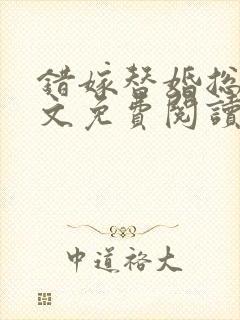 錯嫁替婚總
文免費閱讀
中道裕大